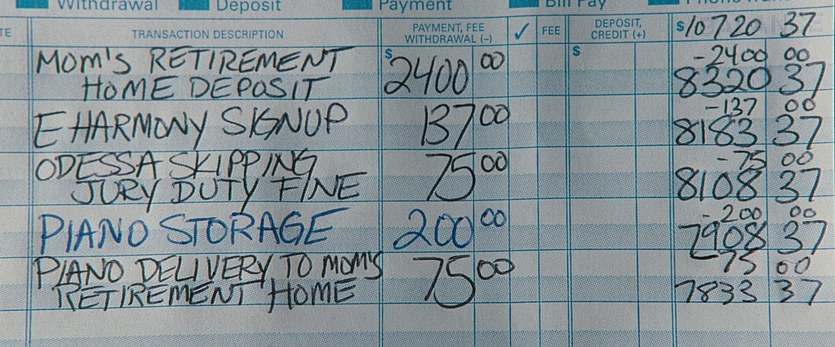 Withdrawal Deposit Payment Bill Pay
TRANSACTION DESCRIPTION PAYMENT, FEE WITHDRAWAL (–) ✓ FEE DEPOSIT, CREDIT (+) $10720 37
MOM'S RETIREMENT $2400 00 -2400 00
HOME DEPOSIT 8320 37
EHARMONY SIGNUP 137 00 -137 00
8183 37
ODESSA SKIPPING 75 00 -75 00
JURY DUTY FINE 8108 37
PIANO STORAGE 200 00 -200 00
7908 37
PIANO DELIVERY TO MOM'S 75 00 75 00
RETIREMENT HOME 7833 37